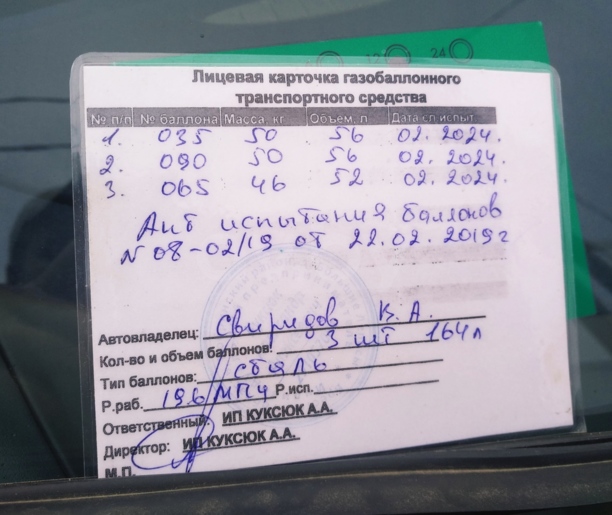 24
Лицевая карточка газобаллонного
транспортного средства
№ п/п № баллона Масса, кг Объем, л Дата сл.испыт.
1. 035 50 56 02. 2024.
2. 090 50 56 02. 2024.
3. 065 46 52 02. 2024.
Акт испытания баллонов
N 08-02/19 от 22.02.2019г
Автовладелец: Свиридов В.А.
Кол-во и объем баллонов: 3 шт 164л
Тип баллонов: сталь
Р.раб. 19,6 МПа Р.исп.
Ответственный: ИП КУКСЮК А.А.
Директор: ИП КУКСЮК А.А.
М.П.